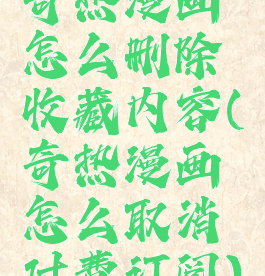 奇热漫画
怎么删除
收藏内容(
奇热漫画
怎么取消
付费订阅)